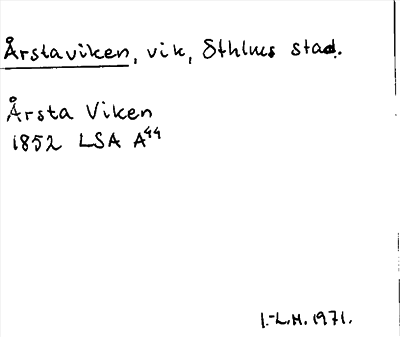 Årstaviken, vik, Sthlms stad.
Årsta Viken
1852 LSA A44
I.-L.M. 1971.